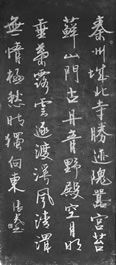 秦州城北寺勝迹隗囂宮苔
蘚山門古丹青野殿空月明
垂葉露雲逐渡溪風清渭
無情極愁時獨向東